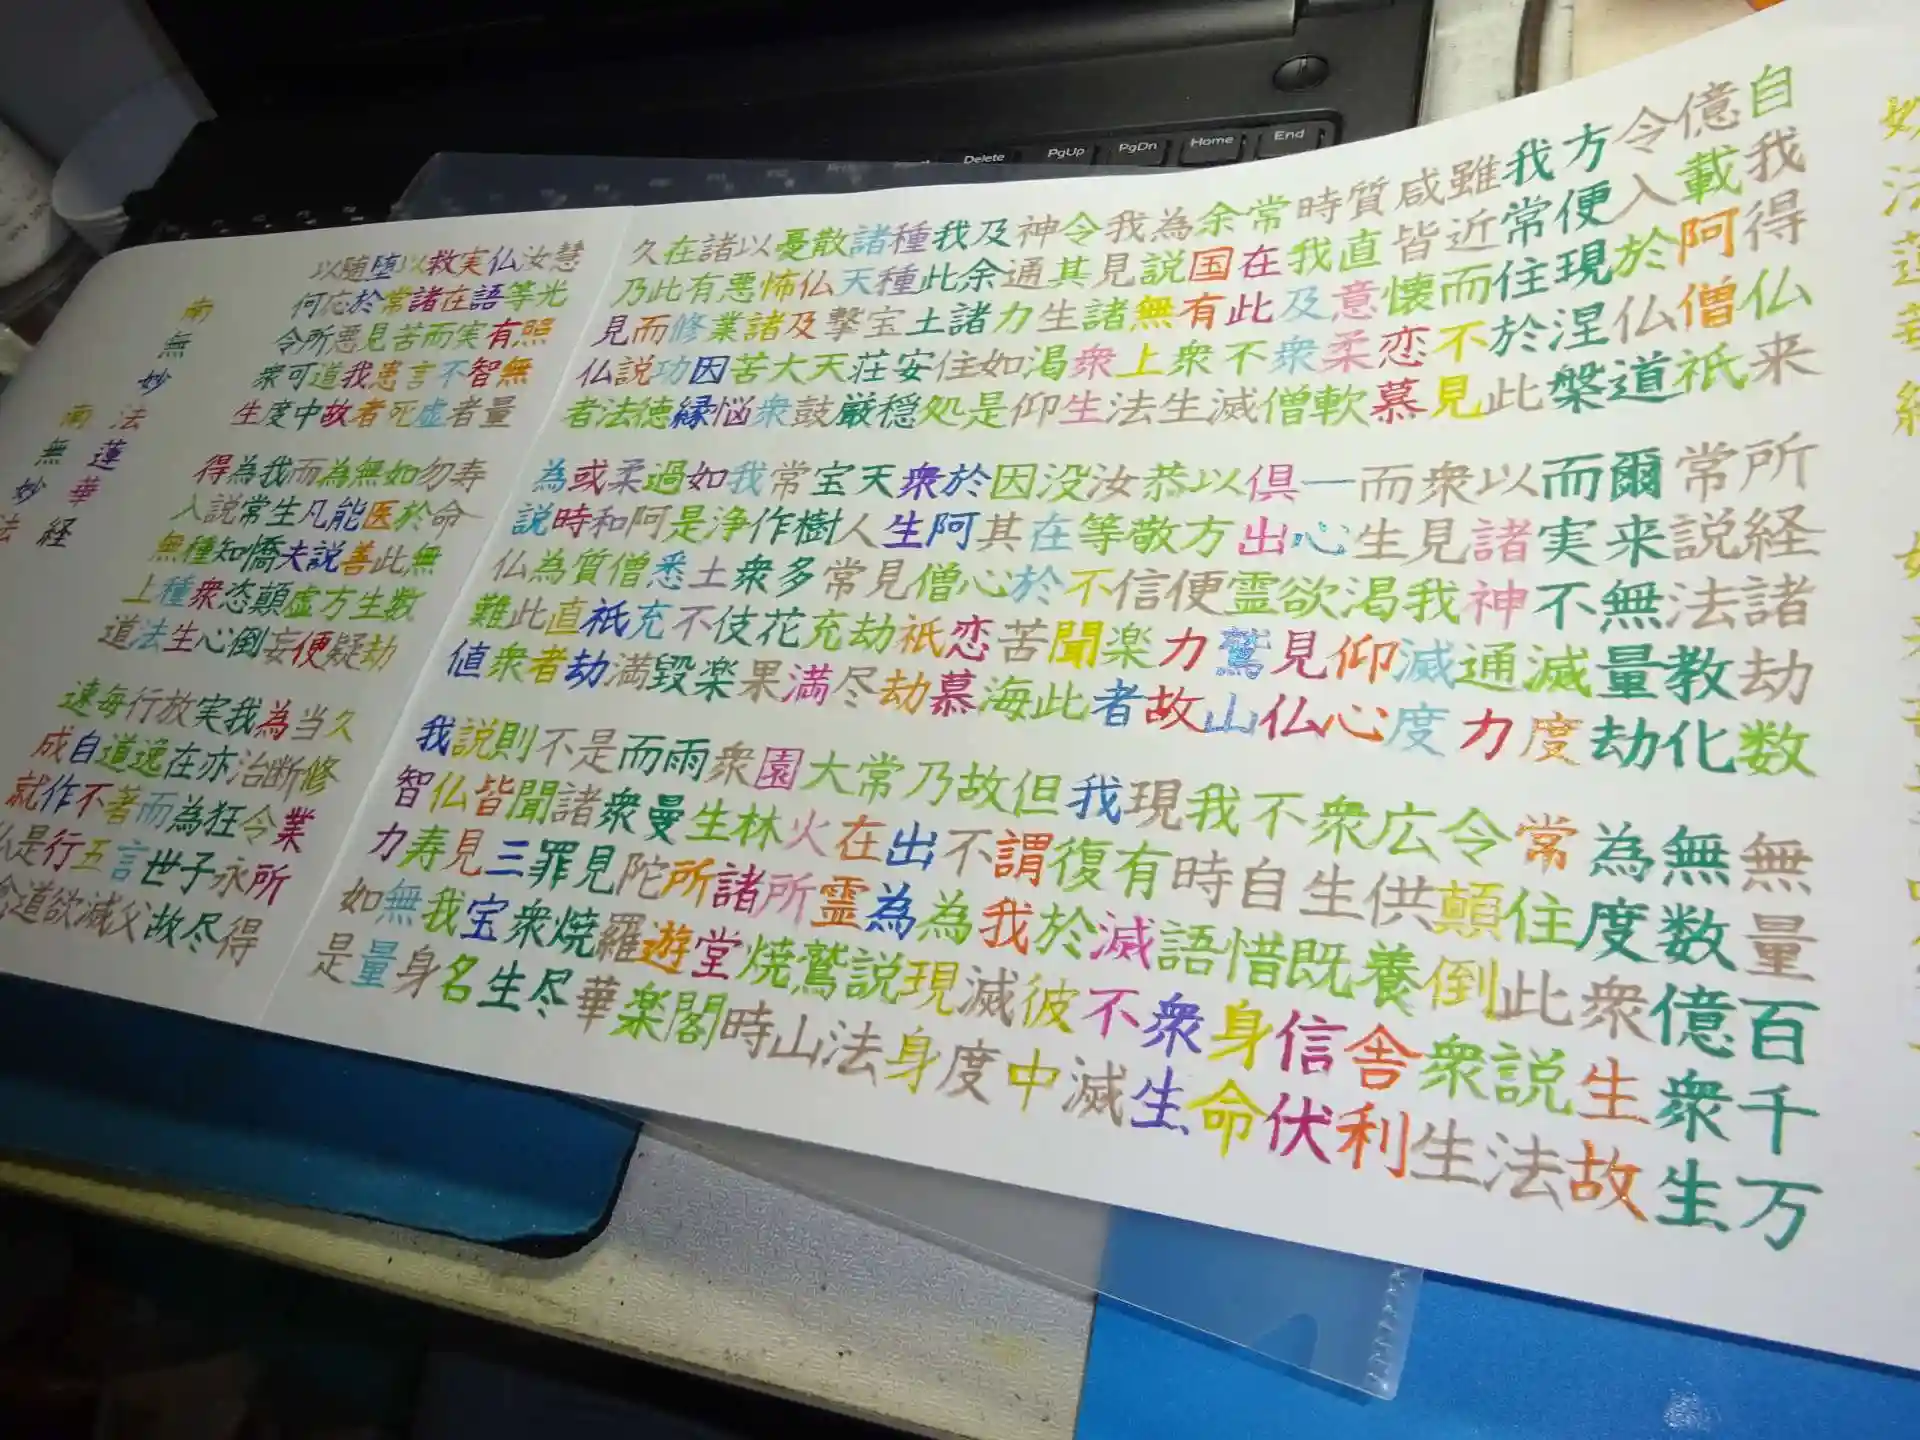 妙法蓮華経
自我得仏来 所経諸劫数 無量百千万
億載阿僧祇 常説法教化 無数億衆生
令入於仏道 爾来無量劫 為度衆生故
方便現涅槃 而実不滅度 常住此説法
我常住於此 以諸神通力 令顛倒衆生
雖近而不見 衆見我滅度 広供養舎利
咸皆懐恋慕 而生渇仰心 衆生既信伏
質直意柔軟 一心欲見仏 不自惜身命
時我及衆僧 倶出霊鷲山 我時語衆生
常在此不滅 以方便力故 現有滅不滅
余国有衆生 恭敬信楽者 我復於彼中
為説無上法 汝等不聞此 但謂我滅度
我見諸衆生 没在於苦海 故不為現身
令其生渇仰 因其心恋慕 乃出為説法
神通力如是 於阿僧祇劫 常在霊鷲山
及余諸住処 衆生見劫尽 大火所焼時
我此土安穏 天人常充満 園林諸堂閣
種種宝荘厳 宝樹多花果 衆生所遊楽
諸天撃天鼓 常作衆伎楽 雨曼陀羅華
散仏及大衆 我浄土不毀 而衆見焼尽
憂怖諸苦悩 如是悉充満 是諸罪衆生
以悪業因縁 過阿僧祇劫 不聞三宝名
諸有修功徳 柔和質直者 則皆見我身
在此而説法 或時為此衆 説仏寿無量
久乃見仏者 為説仏難値 我智力如是
慧光照無量 寿命無数劫 久修業所得
汝等有智者 勿於此生疑 当断令永尽
仏語実不虚 如医善方便 為治狂子故
実在而言死 無能説虚妄 我亦為世父
救諸苦患者 為凡夫顛倒 実在而言滅
以常見我故 而生憍恣心 放逸著五欲
堕於悪道中 我常知衆生 行道不行道
随応所可度 為説種種法 毎自作是念
以何令衆生 得入無上道 速成就仏
南無妙法蓮華経
南無妙法